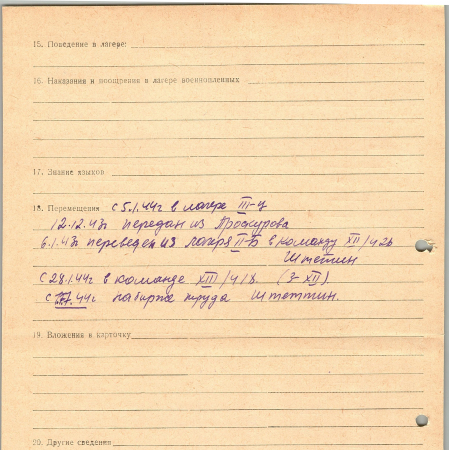 15. Поведение в лагере:
16. Наказания и поощрения в лагере военнопленных
17. Знание языков
18. Перемещения с 5.1.44г в лагере III-Ц
12.12.43г передан из Проскурова
6.1.43г переведен из лагеря II-Б в команду XII/42б
Штетин
с 28.1.44г в команде XIII/41 (3-XII).
с 44г лагерь труда Штеттин.
19. Вложения к карточку
20. Другие сведения